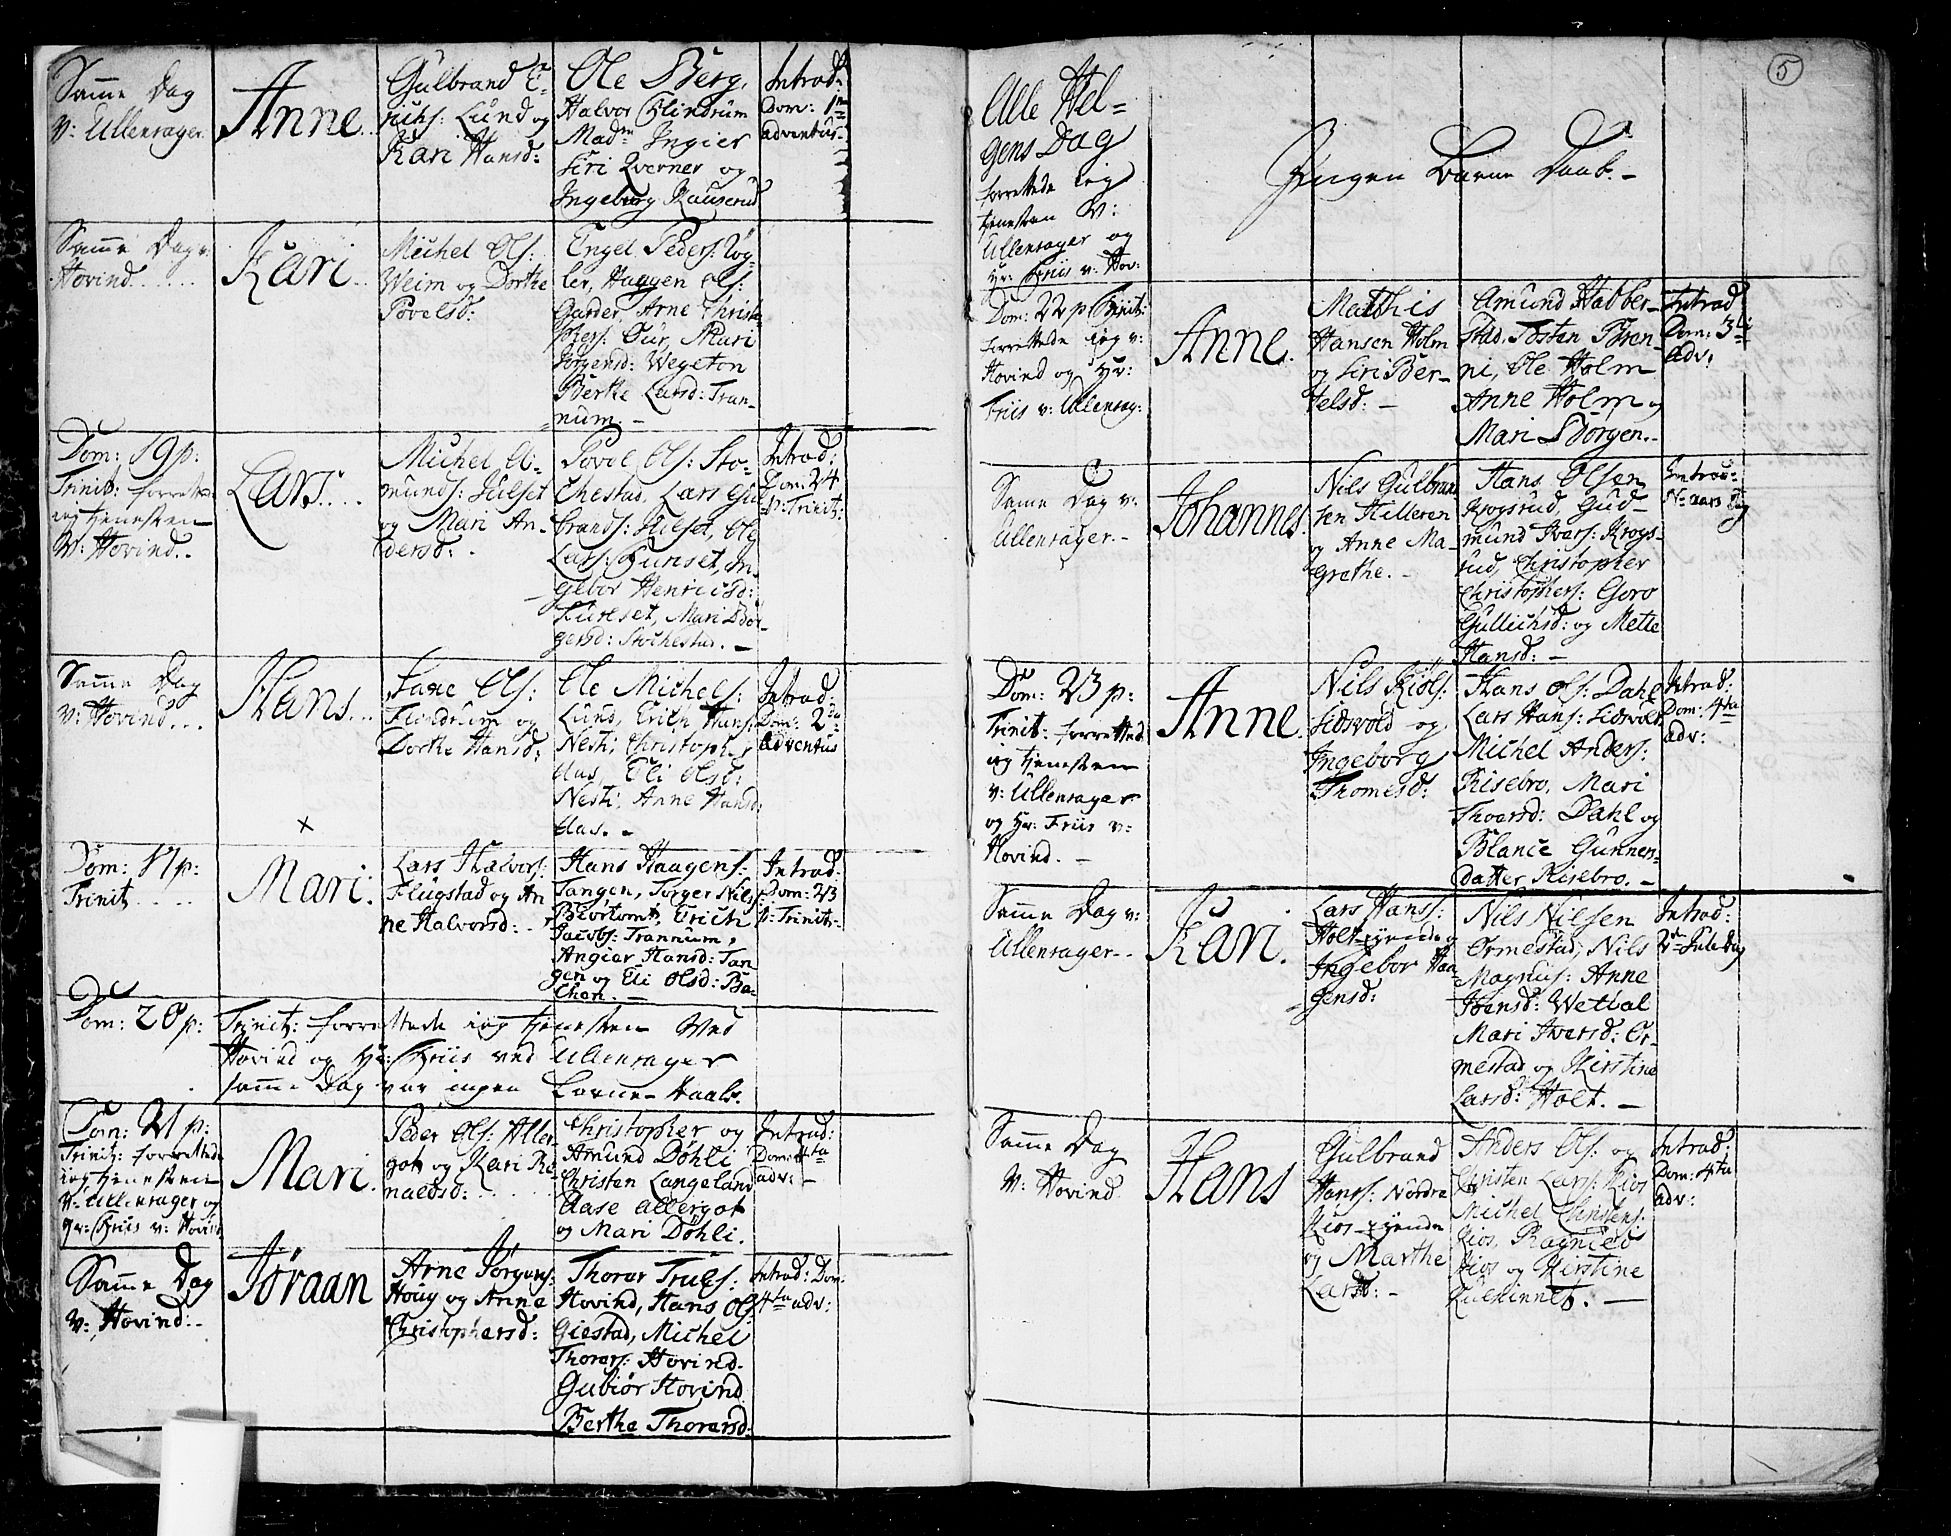 Samme Dag
v: Ullensager.
Anne
Gulbrand E-
richs: Lund og
Kari Hansd:
Ole Berg,
Halvor Clindrum
Madm Ingier
Siri Qverner og
Ingeburg Rauserud
Introd:
Dom: 1ma
adventus.
Samme Dag v:
Hovind
Kari
Michel Ols:
Weim og Dorthe
Povelsd:
Engel Peders: Røg-
ler, Haagen Ols:
Garder Arne Christo-
phers: Bur, Mari
Jørgensd: Wegeton
Berthe Larsd: Tran-
num. -
Dom: 19 p:
Trinit: forrettede
ieg tjenesten
v: Hovind.
Lars
Michel A-
munds: Julset
og Mari An-
dersd:
Povel Ols: Sto-
chestad, Lars Gul
brands: Julset, Ole
Lars: Furuset, In-
gebor Henricsd:
Furuset, Mari Bør-
gersd: Stochestad. -
Introd:
Dom: 24
p: Trinit:
Samme Dag
v: Hovind
Hans
Ole Michels:
Lund, Erich Hans:
Nesti, Christopher
Aas, Eli Olsd:
Nesti, Anne Hansd:
Aas. -
Ols:
Flendrum og
Dorthe Hansd:
Introd:
Dom: 2da
adventus
x
Dom: 17 p:
Trinit
Mari.
Lars Halvors:
Flugstad og An
ne Halvorsd:
Hans Haagens:
Tangen, Torger Nils:
Biørtomt, Erich
Jacobs: Trannum,
Angier Hansd: Tan-
gen og Eli Olsd: Ba-
chen. -
Introd:
Dom: 23
p: Trinit:
Dom: 20 p: Trinit: forrettede ieg tjenesten ved
Hovind og Hr: Friis ved Ullensager
samme Dag var ingen Barne-Daab.
Dom: 21 p:
Trinit: forrettede
ieg tjenesten
v: Ullensager og
Hr: Friis v: Hovind
Mari.
Peder Ols: Aller
got og Kari Re-
naldsd:
Christopher og
Amund Døhli
Christen Langeland
Aase Allergot
og Mari Døhli.
Introd:
Dom: 4ta
adv:
Samme Dag
v: Hovind:
Jøraan
Arne Jørgens:
Houg og Anne
Christophersd:
Thorer Truls:
Hovind, Hans Ols:
Giestad, Michel
Thorers: Hovind.
Gubiør Hovind
Berthe Thorersd:
Introd: Dom:
4ta adv:
5
Alle Hel-
gens Dag
forrettede ieg
tjenesten v:
Ullensager og
Hr: Friis v: Hov:
Ingen Barne Daab. -
Dom: 22 p Trinit:
forrettede ieg v:
Hovind og Hr:
Friis v: Ullensag:
Anne.
Mathis
Hansen Holm
og Siri Ber-
thelsd: -
Amund Habber-
stad, Tosten Foren-
ni, Ole Holm
Anne Holm og
Mari Borgen. -
Introd
Dom: 3tia
Adv:
Samme Dag v:
Ullensager. -
Johannes.
Nils Gulbran
sen Hilleren
og Anne Ma-
grethe. -
Hans Olsen
Krogsrud, Gud-
mund Ivars: Krogs-
rud, Christopher
Christophers: Goro
Gullichsd: og Mette
Hansd: -
Introd:
N: aars Dag
Dom: 23 p:
Trinit: forrettede
ieg tjenesten
v: Ullensager
og Hr: Friis v:
Hovind. -
Anne.
Nils Kiøls:
Eidsvold og
Ingeborg
Thomesd:
Hans Ols: Dahl
Lars Hans: Eidsvold
Michel Anders:
Risebro, Mari
Thorersd: Dahl og
Blance Gunners-
datter Risebro. -
Introd:
Dom: 4ta
adv:
Samme Dag v:
Ullensager. -
Kari.
Lars Hanss:
Holt-eyende og
Ingebor Haa-
gensd:
Nils Nilsen
Ormestad, Nils
Magnus: Anne
Joensd: Wetval
Mari Iversd: Or-
mestad og Kirstine
Larsd: Holt. -
Introd:
2d Juledag
Samme Dag
v: Hovind
Hans
Gulbrand
Hanss: Nordre
Kios-eyende
og Marthe
Larsd: -
Anders Ols: og
Christen Lars: Kios
Michel Christens:
Kios, Ragnild
Kios og Kirstine
Introd:
Dom: 4ta
adv: